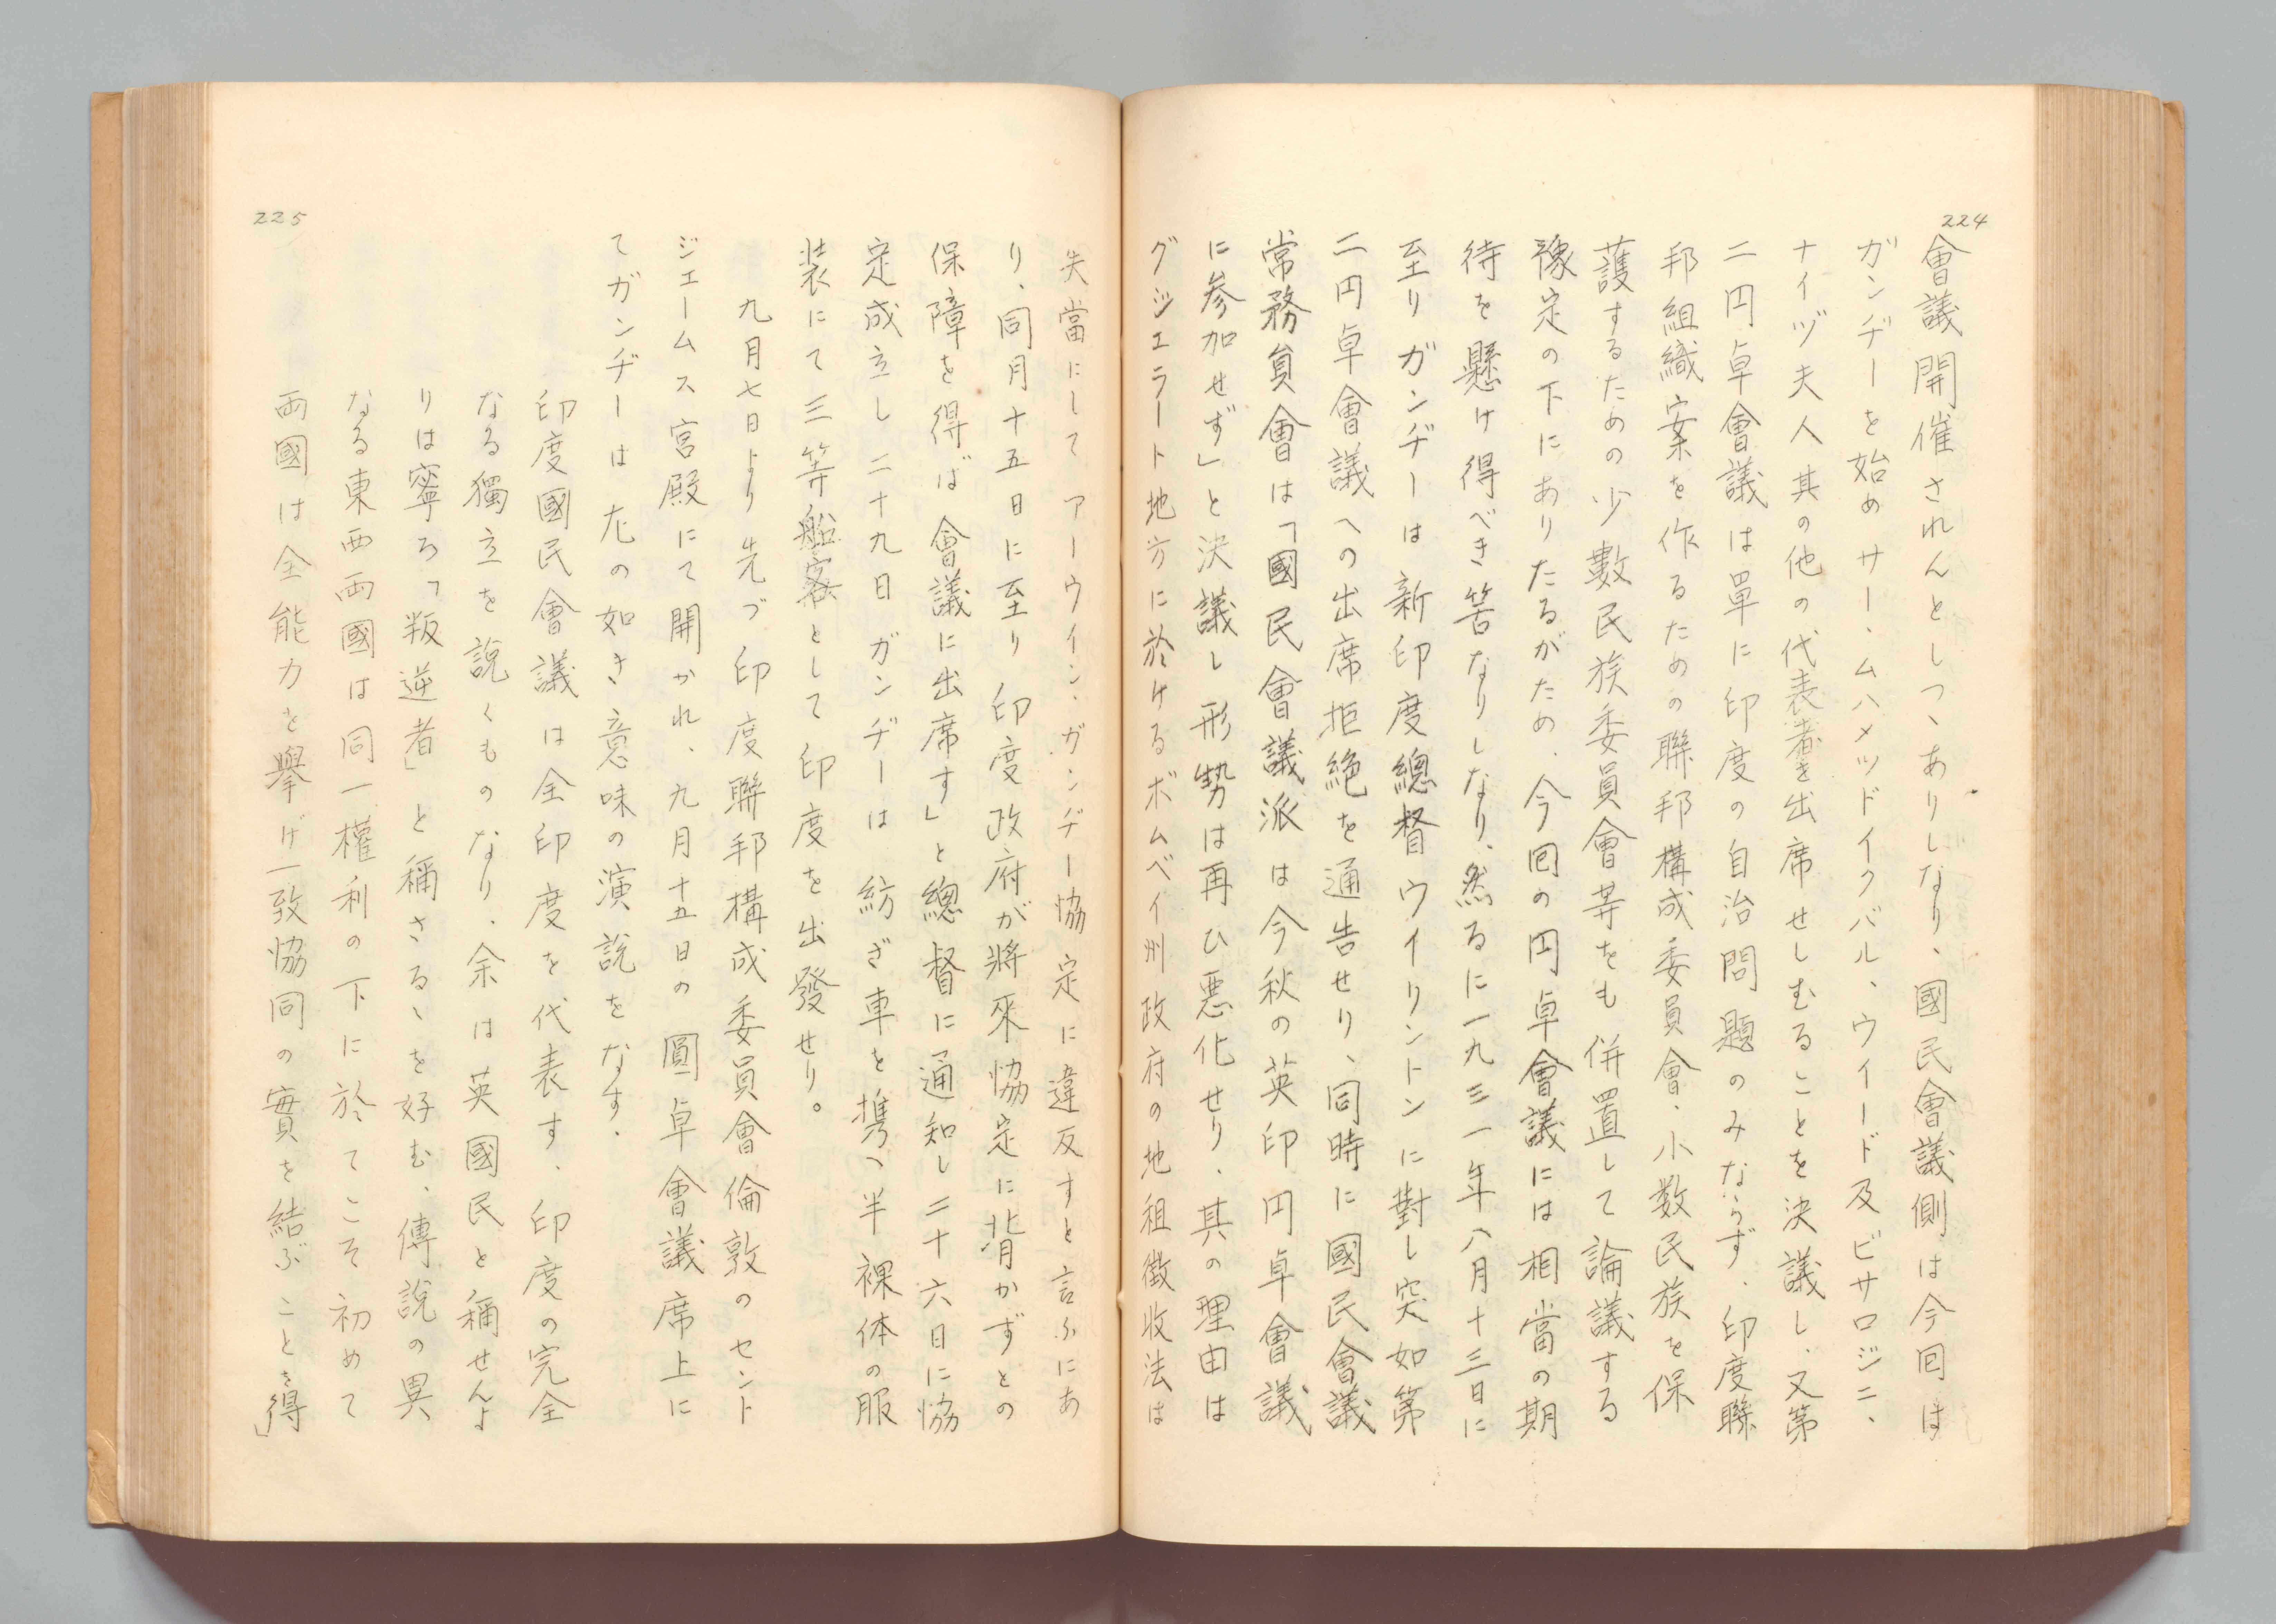 224
會議開催されんとしつゝありしなり、國民會議側は今回は
ガンヂーを始めサー.ムハメッドイクバル、ウイード及ビサロジニ、
ナイヅ夫人其の他の代表者を出席せしむることを決議し、又第
二円卓會議は單に印度の自治問題のみならず.印度聯
邦組織案を作るための聯邦構成委員會.小数民族を保
護するための少數民族委員會等をも併置して論議する
豫定の下にありたるがため.今回の円卓會議には相當の期
待を懸け得べき筈なりしなり、然るに一九三一年八月十三日に
至りガンヂーは新印度總督ウイリントンに對し突如第
二円卓會議への出席拒絶を通告せり、同時に國民會議
常務員會は「國民會議派は今秋の英印円卓會議
に参加せず」と決議し形勢は再ひ悪化せり.其の理由は
グジェラート地方に於けるボムベイ州政府の地祖徴收法は
失當にして アーウイン.ガンヂー協定に違反すと言ふにあ
り、同月十五日に至り印度政府が將來協定に背かずとの
保障を得ば會議に出席す」と總督に通知し二十六日に協
定成立し二十九日ガンヂーは紡ぎ車を携へ半裸体の服
装にて三等船客として印度を出發せり。
九月七日より先づ印度聯邦構成委員會倫敦のセント
ジェームス宮殿にて開かれ、九月十五日の圓卓會議席上に
てガンヂーは尤の如き意味の演説をなす.
印度國民會議は全印度を代表す.印度の完全
なる獨立を説くものなり.余は英國民と稱せんよ
りは寧ろ「叛逆者」と稱さるゝを好む、傳説の異
なる東西両國は同一權利の下に於てこそ初めて
両國は全能力を擧げ一致協同の實を結ぶことを得」
225